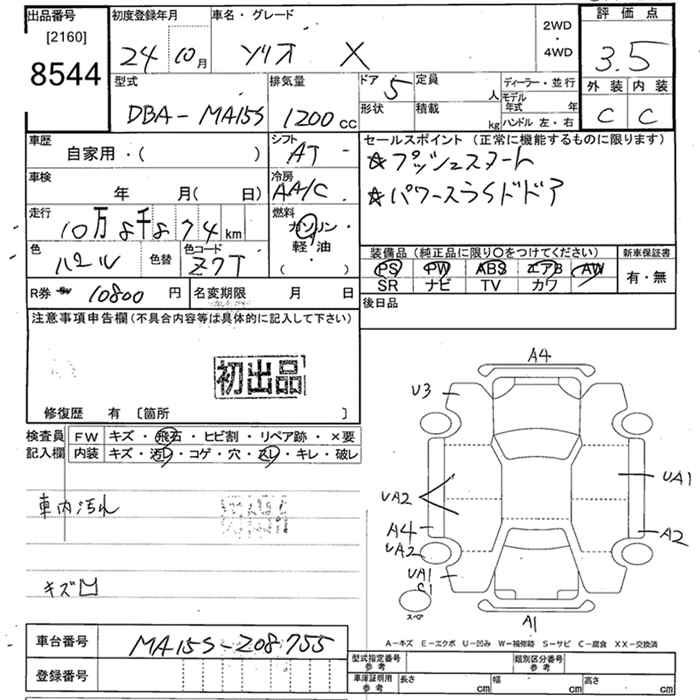 出品番号
[2160]
8544
初度登録年月
24 10月
車名・グレード
ソリオ X
2WD
・
4WD
評価点
3.5
外装 内装
C C
型式
DBA-MA15S
排気量
1200 CC
ドア 5
形状
定員 人
積載 kg
ディーラー・並行
モデル年式 年
ハンドル 左・右
車歴
自家用・( )
シフト
AT -
セールスポイント (正常に機能するものに限ります)
☆プッシュスタート
☆パワースライドドア
車検
年 月( 日)
冷房
AA/C
走行
10万8千874km
燃料
ガソリン・
軽油
( )
色
パール
色替
色コード
Z7T
装備品 (純正品に限り○をつけてください)
PS PW ABS エアB AW
SR ナビ TV カワ
新車保証書
有・無
R券 10800 円
名変期限 月 日
後日品
注意事項申告欄(不具合内容等は具体的に記入して下さい)
初出品
修復歴 有 〔箇所 〕
検査員
記入欄
FW キズ・飛石・ヒビ割・リペア跡・×要
内装 キズ・汚レ・コゲ・穴・スレ・キレ・破レ
車内汚れ
キズ凹
A4
U3
UA2
UA1
A4
UA2
A2
UA1
S1
スペア
A1
A-キズ E-エクボ U-凹み W-補修跡 S-サビ C-腐食 XX-交換済
車台番号
MA15S-208755
登録番号
型式指定番号
参考
類別区分番号
参考
車庫証明用
参考
長さ cm 幅 cm 高さ cm